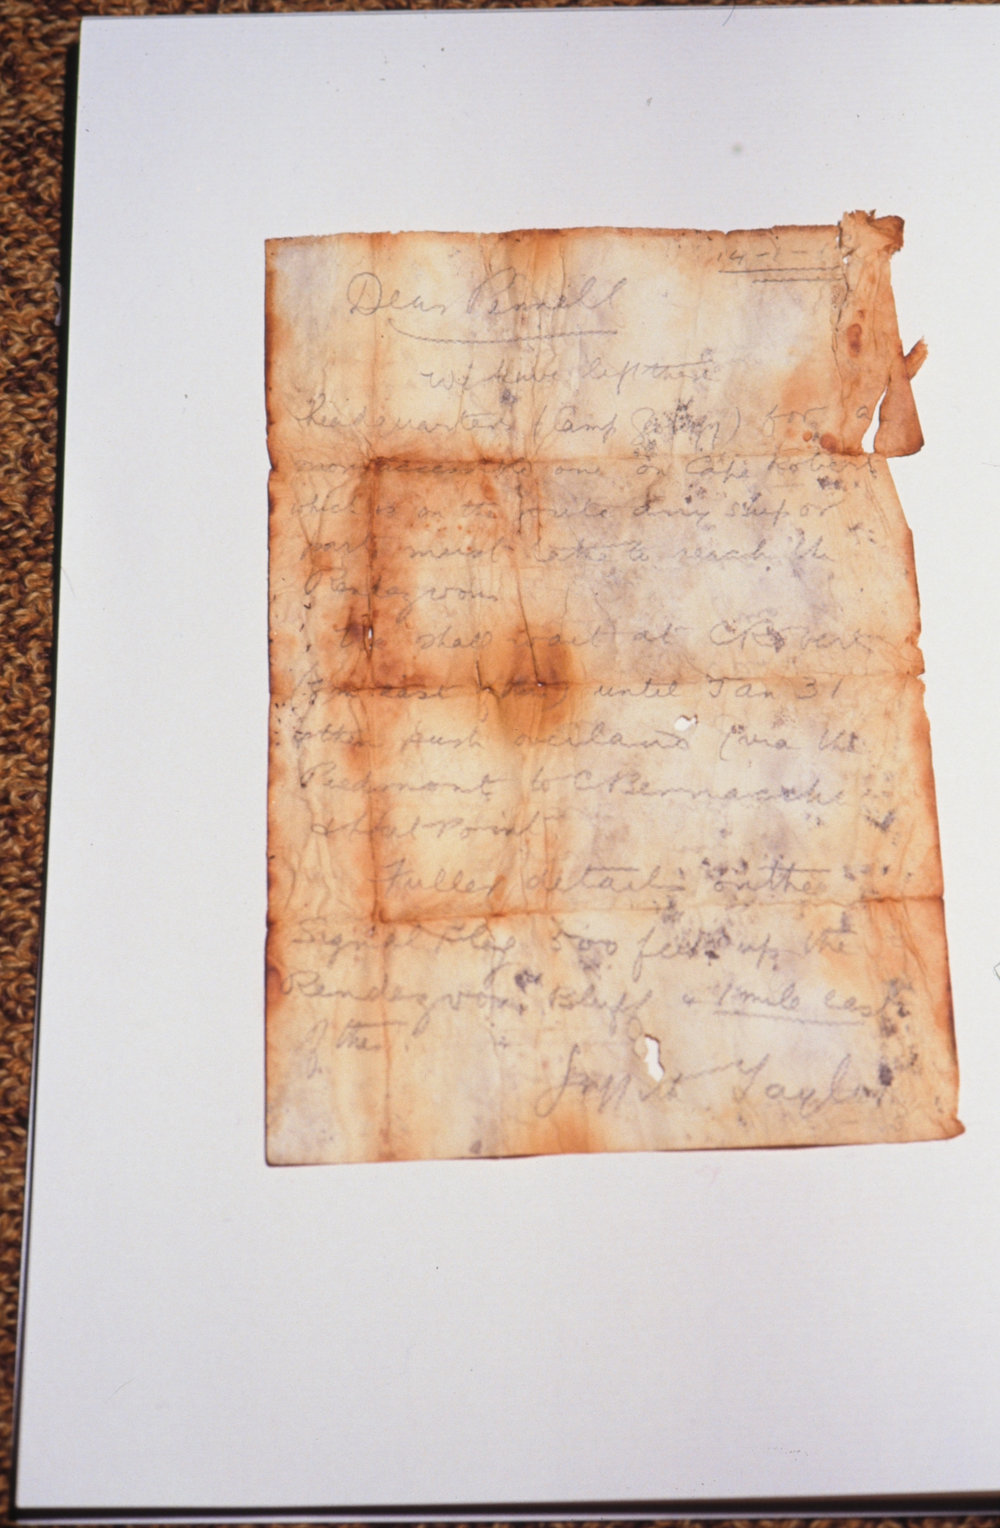 14-1-1
Dear Pennell
We have left these
headquarters (Camp ) for a
more accessible one on Cape Roberts
which is on the route any ship or
party must take to reach the
Rendezvous
We shall wait at C Roberts
until Jan 31
then push overland (via the
Piedmont to C Bernacchi
& Hut Point
Fuller details on the
Signal Flag 500 feet up the
Rendezvous Bluff & 1 mile east
of the
Griffith Taylor